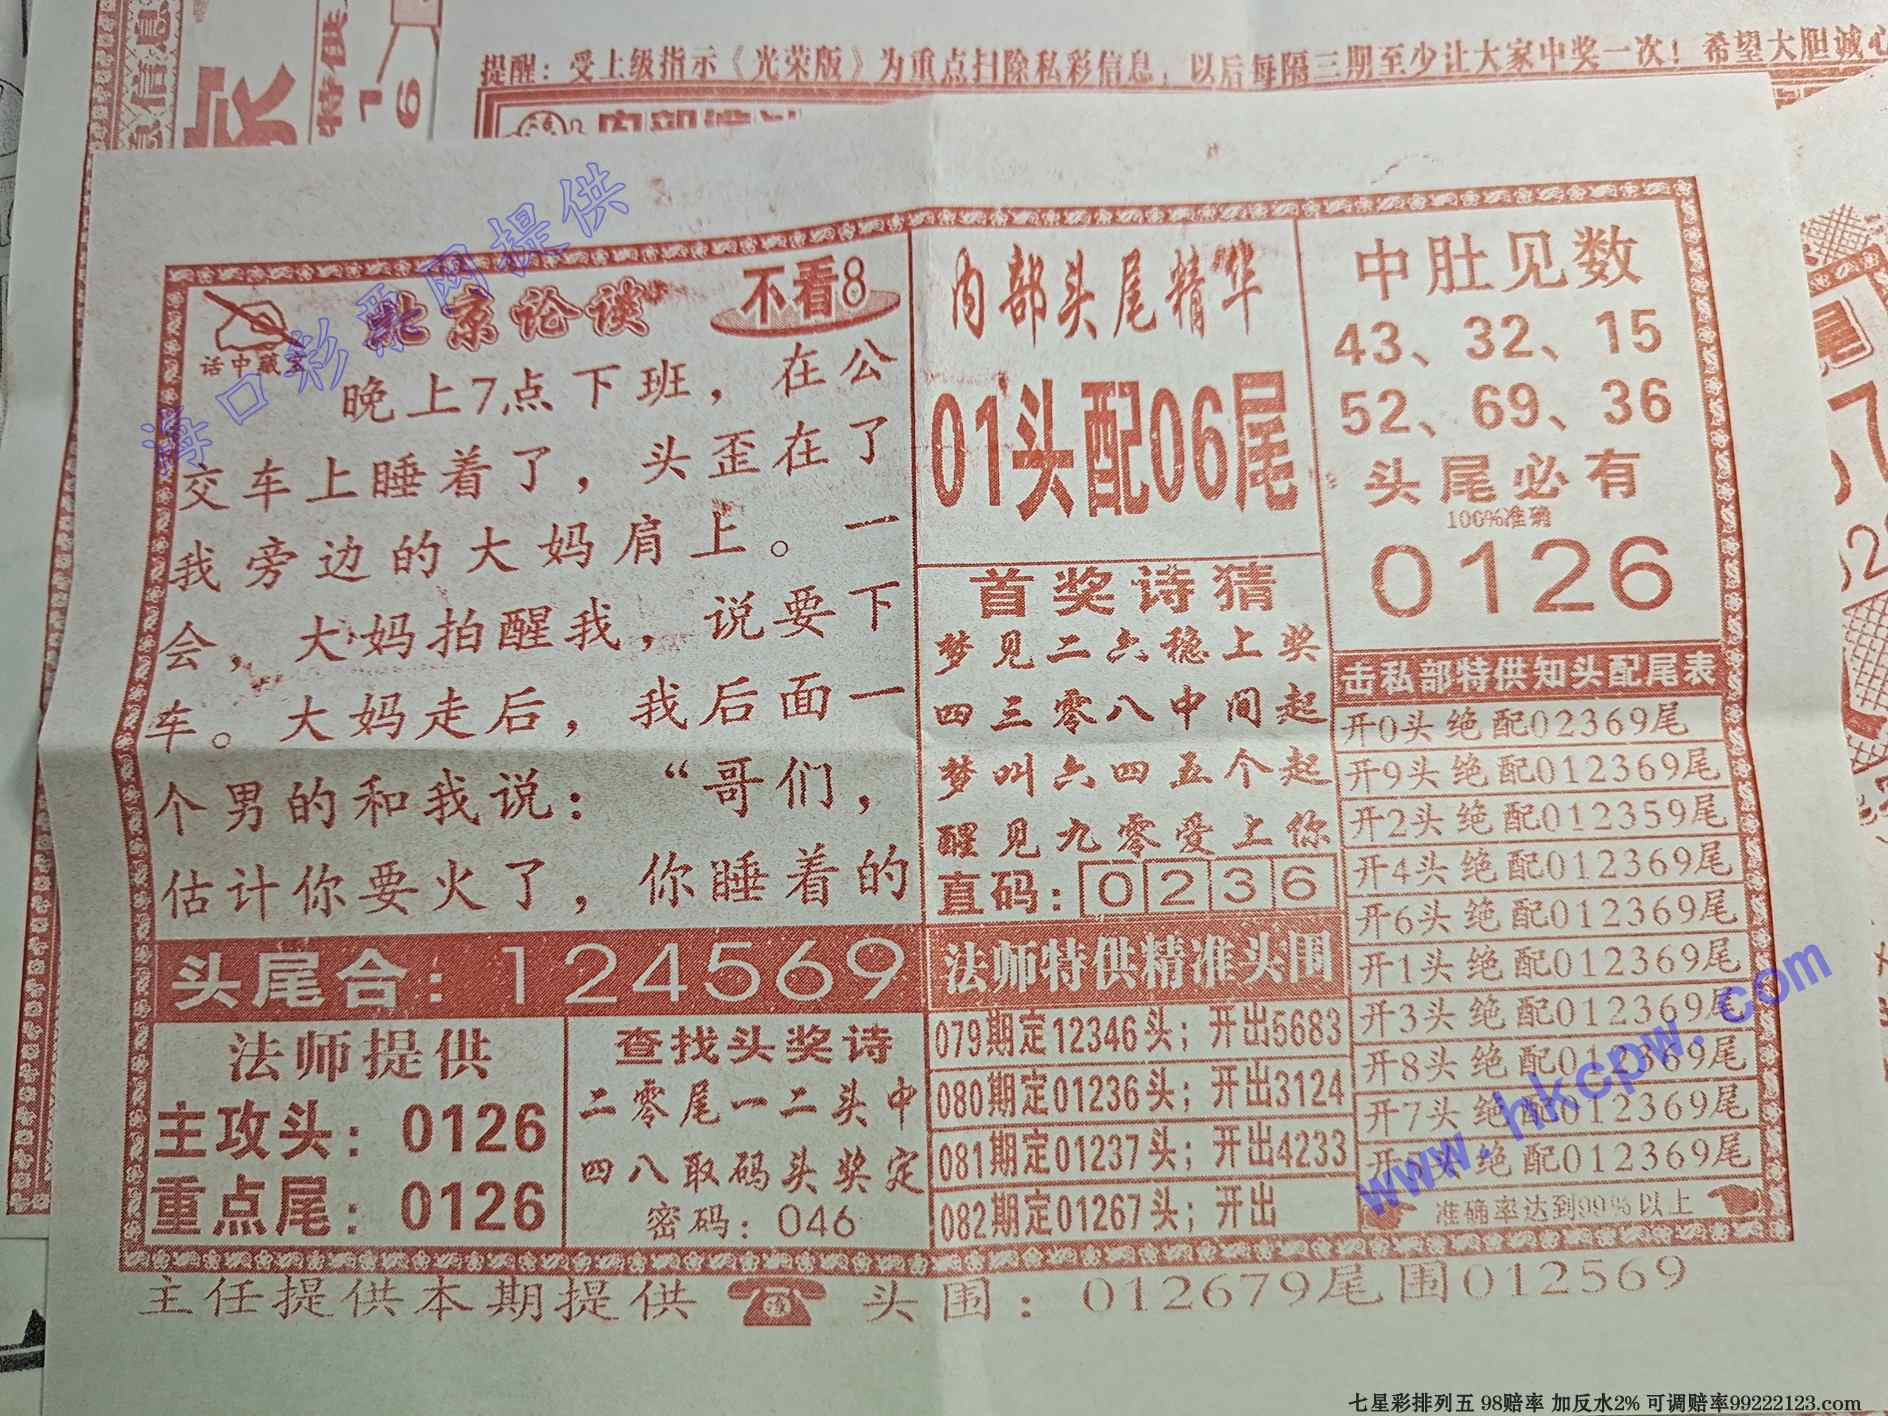 提醒：受上级指示《光荣版》为重点扫除私彩信息，以后每隔三期至少让大家中奖一次！希望大胆诚心
信息
特供
1
6
海口彩票网提供
北京论谈
不看8
话中藏玄
晚上7点下班，在公
交车上睡着了，头歪在了
我旁边的大妈肩上。一
会，大妈拍醒我，说要下
车。大妈走后，我后面一
个男的和我说：“哥们，
估计你要火了，你睡着的
头尾合：124569
法师提供
主攻头：0126
重点尾：0126
查找头奖诗
二零尾一二头中
四八取码头奖定
密码：046
内部头尾精华
01头配06尾
首奖诗猜
梦见二六稳上奖
四三零八中间起
梦叫六四五个起
醒见九零爱上你
直码：0236
法师特供精准头围
079期定12346头；开出5683
080期定01236头；开出3124
081期定01237头；开出4233
082期定01267头；开出
中肚见数
43、32、15
52、69、36
头尾必有
100%准确
0126
击私部特供知头配尾表
开0头绝配02369尾
开9头绝配012369尾
开2头绝配012359尾
开4头绝配012369尾
开6头绝配012369尾
开1头绝配012369尾
开3头绝配012369尾
开8头绝配012369尾
开7头绝配012369尾
头绝配012369尾
准确率达到99%以上
www.hkcpw.com
主任提供本期提供 头围：012679尾围012569
七星彩排列五 98赔率 加反水2% 可调赔率99222123.com